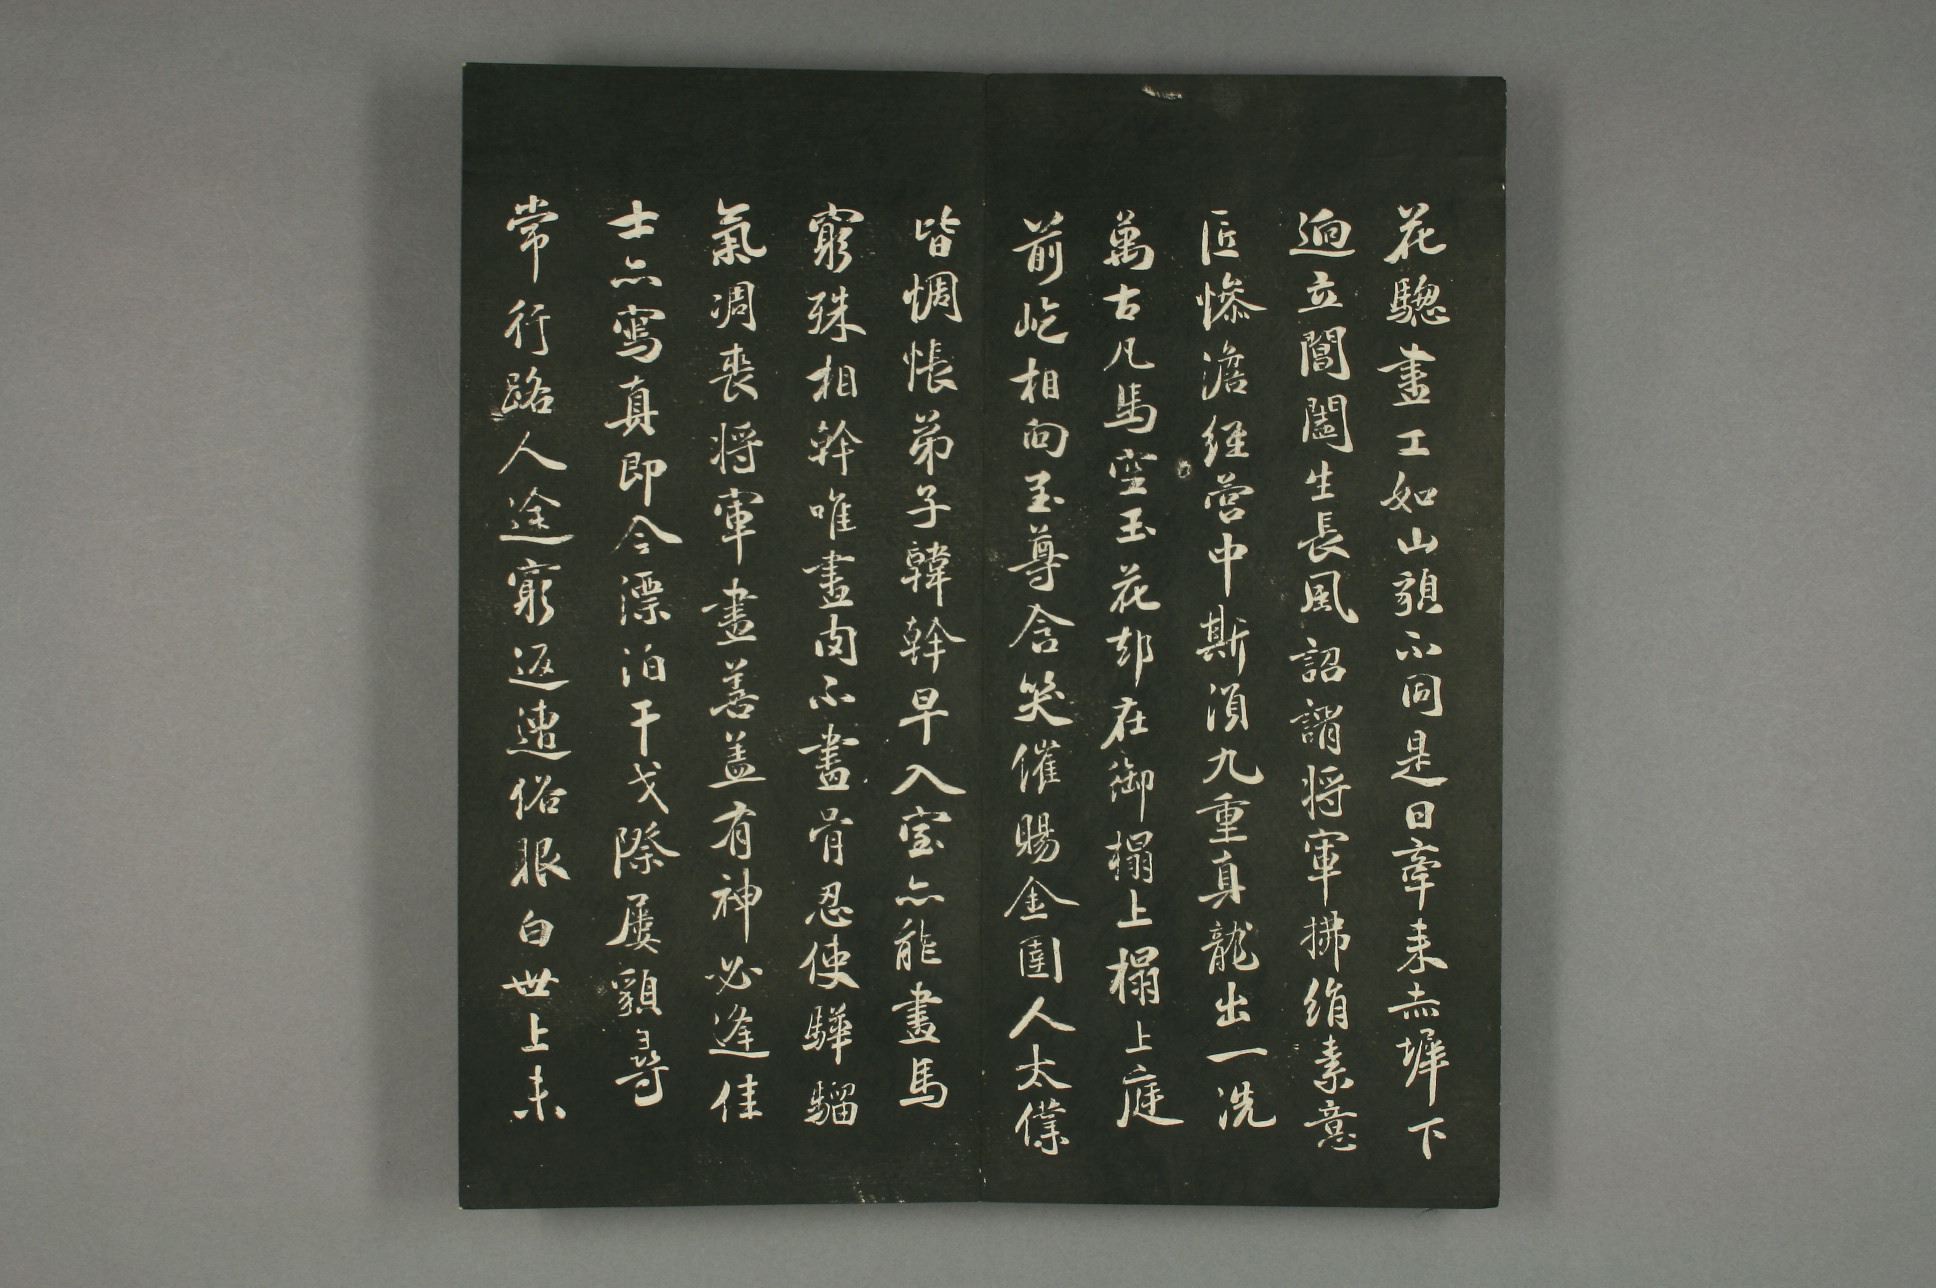 花驄畫工如山貌不同是日牽来赤墀下
迥立閶闔生長風詔謂将軍拂絹素意
匠惨澹經営中斯湏九重真龍出一洗
萬古凡馬空玉花却在御榻上榻上庭
前屹相向至尊含笑催賜金圉人太僕
皆惆悵弟子韓幹早入室亦能畫馬
窮殊相幹唯畫肉不畫骨忍使驊騮
氣凋喪将軍畫善盖有神必逢佳
士亦寫真即今漂泊干戈際屢貌尋
常行路人途窮返遭俗眼白世上未